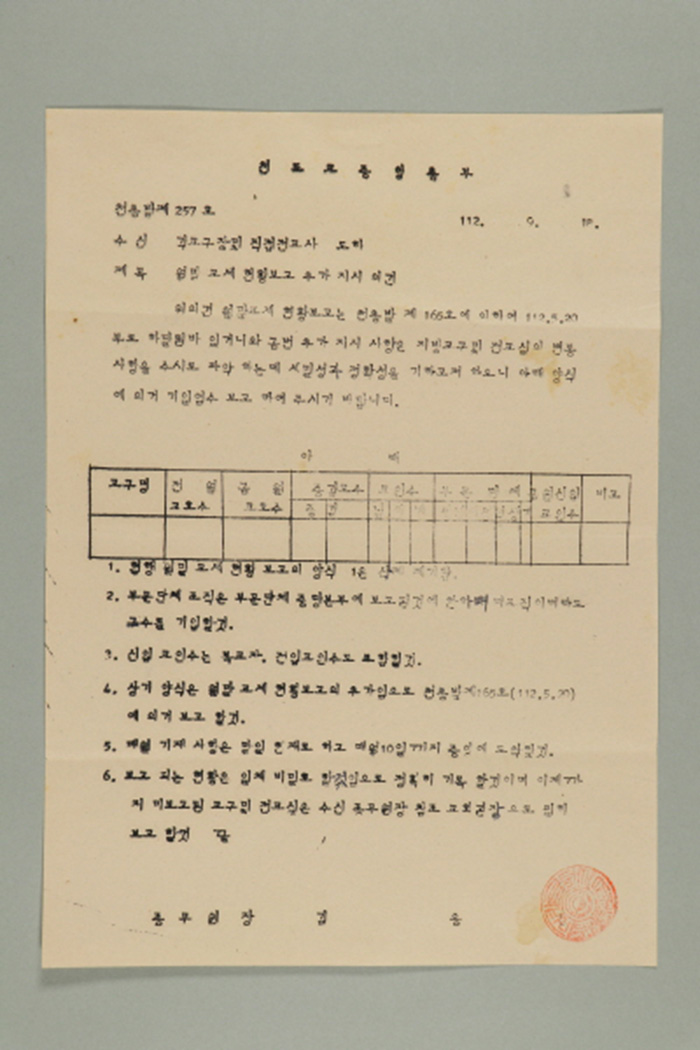 천도교중앙총부
천총발제 257 호
112. 9. 18.
수 신 각교구장및 직접전교사 도하
제 목 월말 교세 현황보고 추가 지시 의건
위의건 월말교세 현황보고는 천총발 제 165호에 의하여 112.5.20
부로 하달한바 있거니와 금번 추가 지시 사항은 지방교구및 전교실의 변동
사항을 수시로 파악 하는데 세밀성과 정확성을 기하고저 하오니 아래 양식
에 의거 기입업수 보고 하여 주시기 바랍니다.
아 래
교구명 전 월 금 월 증감교수 교인수 부 문 단 체 교인 비고
교호수 교호수 증 감 교인수
1. 현행 월말 교세 현황 보고의 양식 1은
2. 부문단체 조직은 부문단체 중앙본부에 보고된것에 한하며
교수를 기입할것.
3. 신입 교인수는 복교자, 전입교인수도 포함할것.
4. 상기 양식은 월말 교세 현황보고의 추가임으로 천총발제165호(112.5.20)
에 의거 보고 할것.
5. 매월 기재 사항은 말일 현재로 하고 매월10일까지 총부에 도착할것.
6. 보고 되는 현황은 일체 비밀로 할것임으로 정확히 기록 할것이며 이제까
지 미보고된 교구및 전교실은 수신 종무원장 참조 교화관장으로 필히
보고 할것 끝
종 무 원 장 김